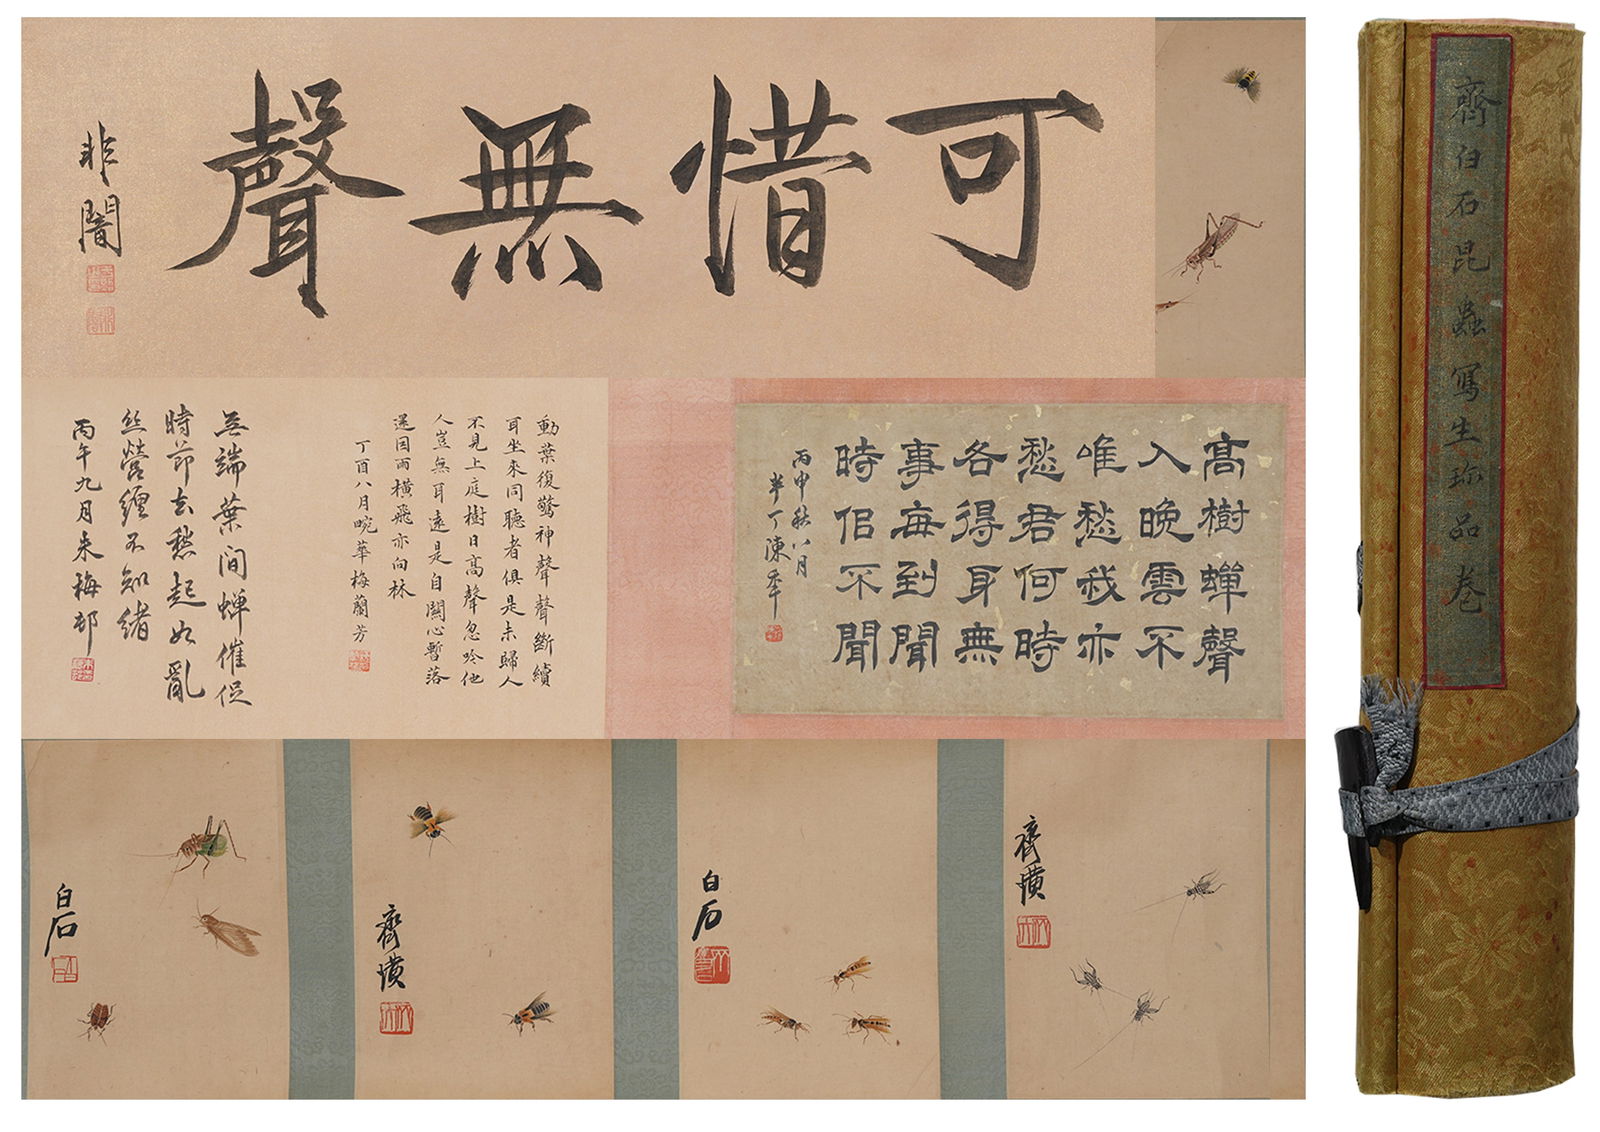 可惜無聲
非闇
高樹蟬聲
入晚雲不
唯愁我亦
愁君何時
各得身無
事每到聞
時侣不聞
丙申秋八月
半丁陳年
動葉復驚神聲聲斷續
耳坐來同聽者俱是未歸人
不見上庭樹日高聲忽吟他
人豈無耳遠是自關心暫落
還因雨橫飛亦向林
丁酉八月畹華梅蘭芳
無端葉間蟬催促
時節去愁起如亂
丝營纏不知緒
丙午九月朱梅邨
白石
齊璜
白石
齊璜
齊白石昆蟲寫生珎品卷